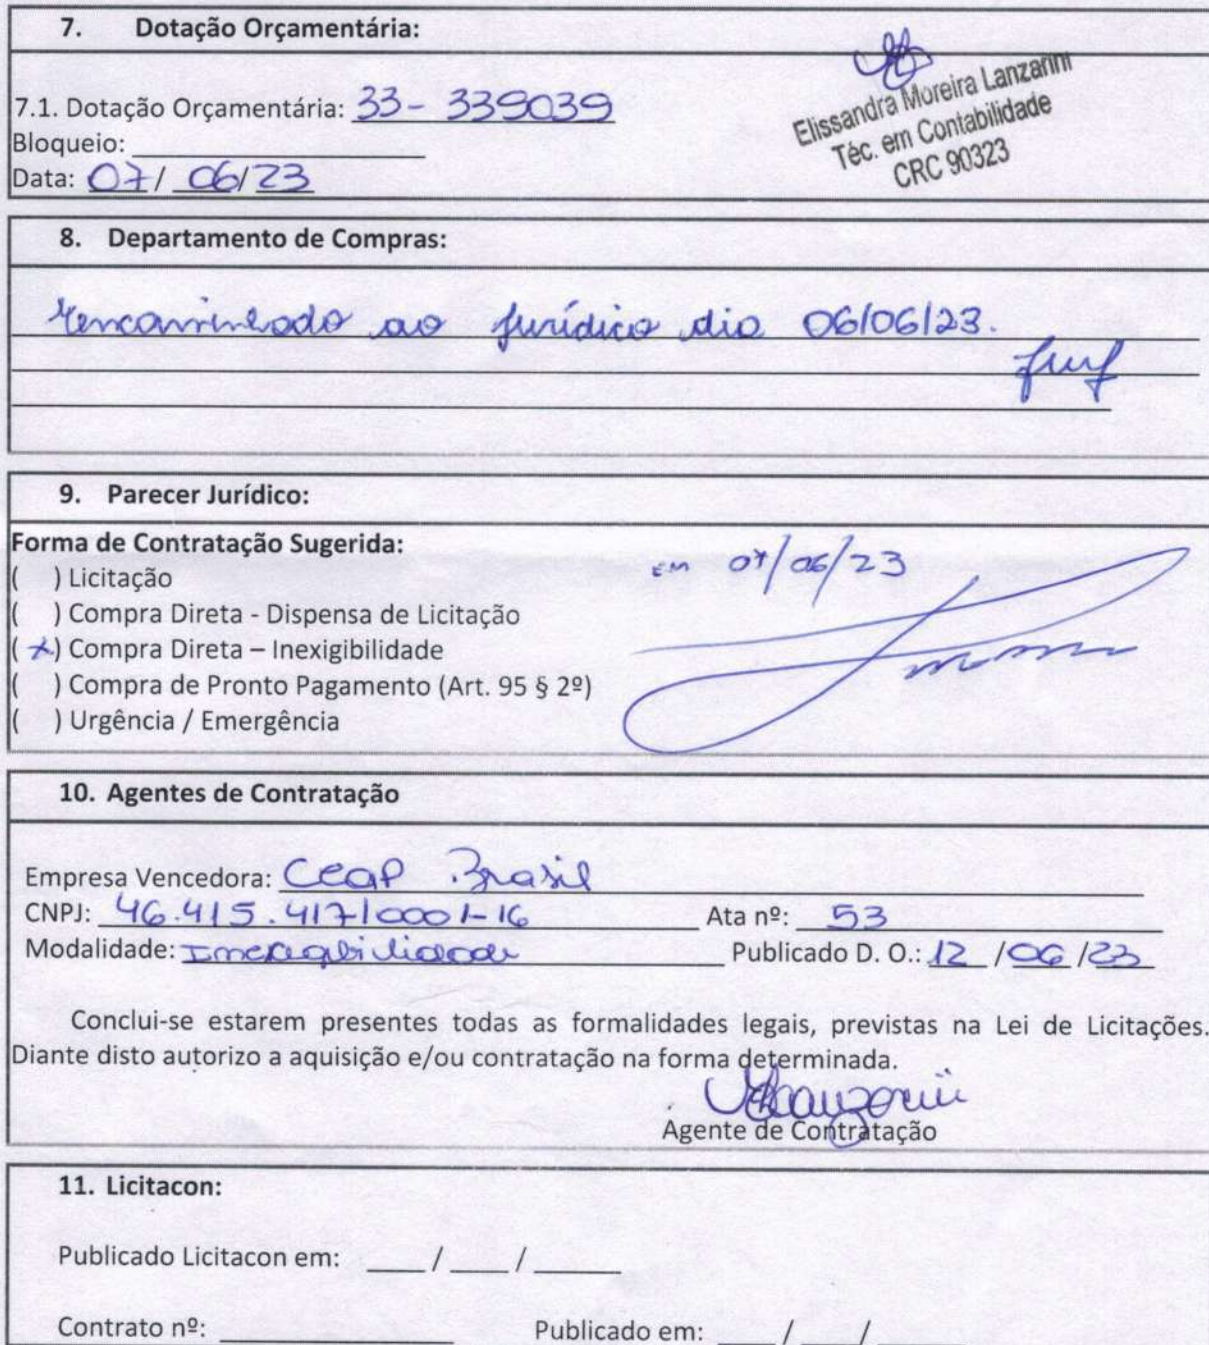 7. Dotação Orçamentária:
7.1. Dotação Orçamentária: 33- 339039
Bloqueio:
Data: 07/ 06/23
Elissandra Moreira Lanzarini
Téc. em Contabilidade
CRC 90323
8. Departamento de Compras:
encaminhado ao jurídico dia 06/06/23.
9. Parecer Jurídico:
Forma de Contratação Sugerida:
( ) Licitação
( ) Compra Direta - Dispensa de Licitação
( x ) Compra Direta – Inexigibilidade
( ) Compra de Pronto Pagamento (Art. 95 § 2º)
( ) Urgência / Emergência
em 07/06/23
10. Agentes de Contratação
Empresa Vencedora: Ceap Brasil
CNPJ: 46.415.417/0001-16 Ata nº: 53
Modalidade: Inexigibilidade Publicado D. O.: 12 /06 /23
Conclui-se estarem presentes todas as formalidades legais, previstas na Lei de Licitações.
Diante disto autorizo a aquisição e/ou contratação na forma determinada.
Agente de Contratação
11. Licitacon:
Publicado Licitacon em: ____ / ____ / ______
Contrato nº: ________________ Publicado em: ____ / ____ / ______